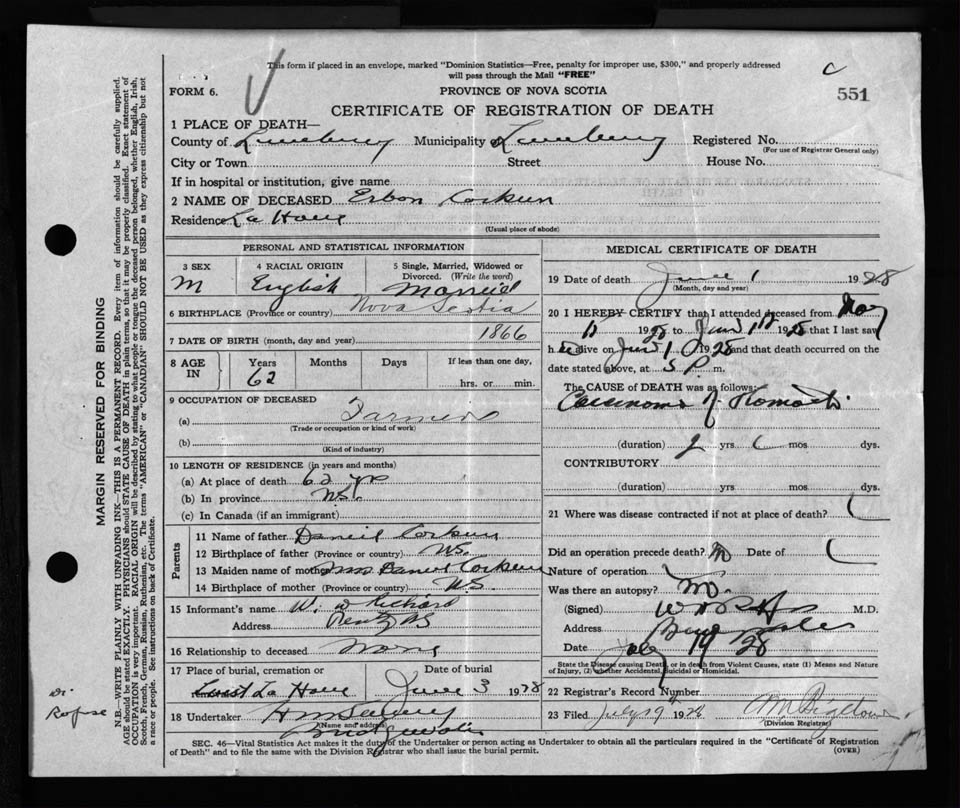 This form if placed in an envelope, marked "Dominion Statistics—Free, penalty for improper use, $300," and properly addressed
will pass through the Mail "FREE"
FORM 6.
PROVINCE OF NOVA SCOTIA
c
551
CERTIFICATE OF REGISTRATION OF DEATH
1 PLACE OF DEATH—
County of Lunenburg Municipality Lunenburg Registered No.
(For use of Registrar General only)
City or Town Street House No.
If in hospital or institution, give name
2 NAME OF DECEASED Erbon Corkum
Residence La Have
(Usual place of abode)
PERSONAL AND STATISTICAL INFORMATION
3 SEX 4 RACIAL ORIGIN 5 Single, Married, Widowed or Divorced. (Write the word)
M English Married
6 BIRTHPLACE (Province or country) Nova Scotia
7 DATE OF BIRTH (month, day and year) 1866
8 AGE IN Years Months Days If less than one day,
62 hrs. or min.
9 OCCUPATION OF DECEASED
(a) Farmer
(Trade or occupation or kind of work)
(b)
(Kind of industry)
10 LENGTH OF RESIDENCE (in years and months)
(a) At place of death 62 yrs
(b) In province N.S.
(c) In Canada (if an immigrant)
Parents
11 Name of father Daniel Corkum
12 Birthplace of father (Province or country) N.S.
13 Maiden name of mother Mrs Daniel Corkum
14 Birthplace of mother (Province or country) N.S.
15 Informant's name W. W Richard
Address N.S
16 Relationship to deceased None
17 Place of burial, cremation or Date of burial
La Have June 3 1928
18 Undertaker
(Name and address)
Bridgewater
MEDICAL CERTIFICATE OF DEATH
19 Date of death June 1 1928
(Month, day and year)
20 I HEREBY CERTIFY that I attended deceased from May
15 1928 to June 1st 1928 that I last saw
h alive on June 1 1928 and that death occurred on the
date stated above, at 5 P. m.
The CAUSE OF DEATH was as follows:
Carcinoma of Stomach
(duration) yrs mos dys.
CONTRIBUTORY
(duration) yrs mos dys.
21 Where was disease contracted if not at place of death?
Did an operation precede death? No Date of
Nature of operation
Was there an autopsy? No.
(Signed) M.D.
Address Bridgewater
Date July 19 28
State the Disease causing Death, or in death from Violent Causes, state (1) Means and Nature
of Injury, (2) whether Accidental, Suicidal or Homicidal.
22 Registrar's Record Number
23 Filed July 19th 1928
(Division Registrar)
SEC. 46—Vital Statistics Act makes it the duty of the Undertaker or person acting as Undertaker to obtain all the particulars required in the "Certificate of Registration
of Death" and to file the same with the Division Registrar who shall issue the burial permit.
(OVER)
MARGIN RESERVED FOR BINDING
N.B.—WRITE PLAINLY WITH UNFADING INK—THIS IS A PERMANENT RECORD. Every item of information should be carefully supplied.
AGE should be stated EXACTLY. PHYSICIANS should STATE CAUSE OF DEATH in plain terms, so that it may be properly classified. Exact statement of
OCCUPATION is very important. RACIAL ORIGIN will be described by stating to what people or tongue the deceased person belonged, whether English, Irish,
Scotch, French, German, Russian, Ruthenian, etc. The terms "AMERICAN" or "CANADIAN" SHOULD NOT BE USED as they express citizenship but not
a race or people. See instructions on back of Certificate.